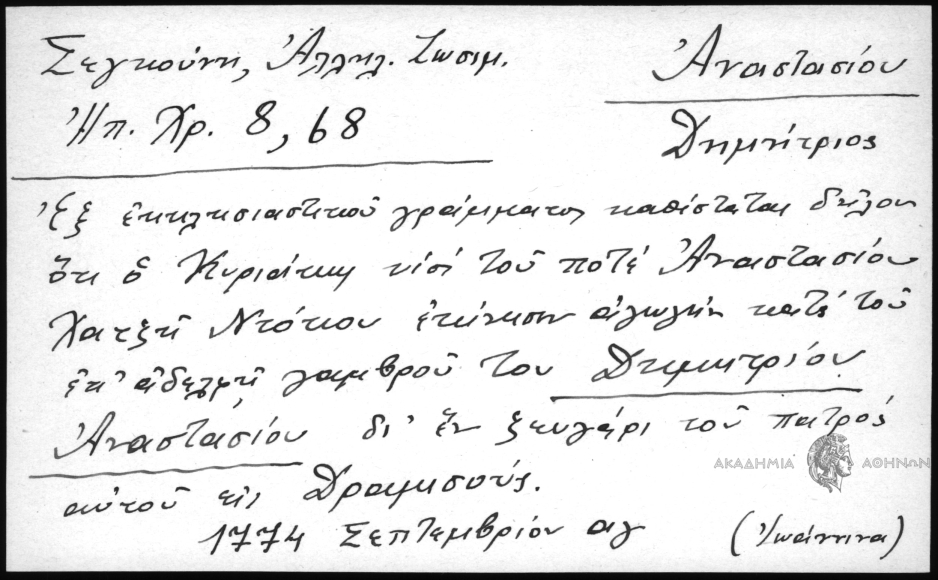 Σεγκούνη, Ἀλληλ. Ζωσιμ.
Ἠπ. Χρ. 8, 68
Ἀναστασίου
Δημήτριος
Ἐξ ἐκκλησιαστικοῦ γράμματος καθίσταται δῆλον
ὅτι ὁ Κυριάκης υἱός τοῦ ποτέ Ἀναστασίου
Χατζῆ Ντόκου ἐκίνησεν ἀγωγήν κατά τοῦ
ἐπ' ἀδελφῇ γαμβροῦ του Δημητρίου
Ἀναστασίου δι' ἕν ζευγάρι τοῦ πατρός
αὐτοῦ εἰς Δραμισούς.
1774 Σεπτεμβρίου αγ (Ἰωάννινα)
ΑΚΑΔΗΜΙΑ ΑΘΗΝΩΝ